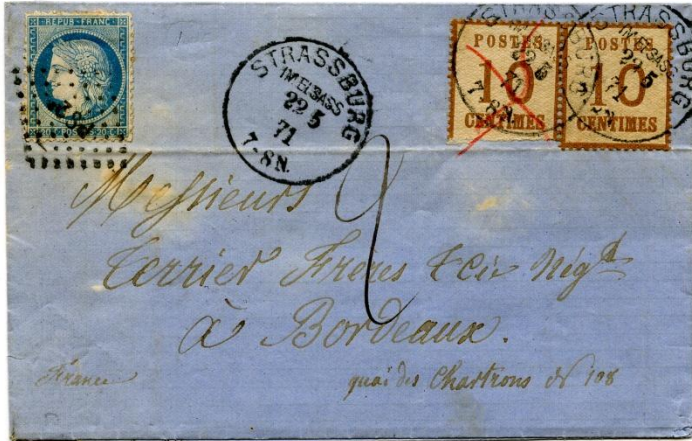 REPUB. FRANC.
20 POSTES 20
STRASSBURG
IM ELSASS
22 5
71
7-8 N.
POSTES
10
CENTIMES
STRASSBURG
22 5
71
7-8 N.
POSTES
10
CENTIMES
STRASSBURG
IM ELSASS
22 5
71
2
Messieurs
Terrier Frères & Cie Négts
à Bordeaux.
France
quai des Chartrons No 108